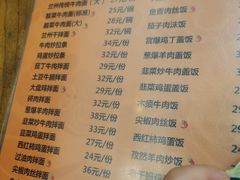 兰州传统牛肉面(大)
酸菜牛肉面(标准) 25元/碗
酸菜牛肉面(大) 28元/碗
兰州干拌面 27元/份
牛肉炒拉条 34元/份
鸡蛋炒拉条 32元/份
茄丁牛肉拌面 34元/份
土豆牛腩拌面
大盘鸡拌面 39元/份
碎肉拌面
葱爆羊肉拌面 38元/份
韭菜炒肉拌面 32元/份
韭菜鸡蛋拌面
西红柿鸡蛋拌面 27元/份
过油肉拌面 24元/份
尖椒肉丝拌面 36元/份
29元/份
鱼香肉丝饭
茄子肉沫饭
宫爆鸡丁盖饭
葱爆羊肉盖饭
韭菜炒肉盖饭
韭菜鸡蛋盖饭
木须牛肉饭
尖椒肉丝饭
西红柿鸡蛋饭
孜然羊肉炒饭